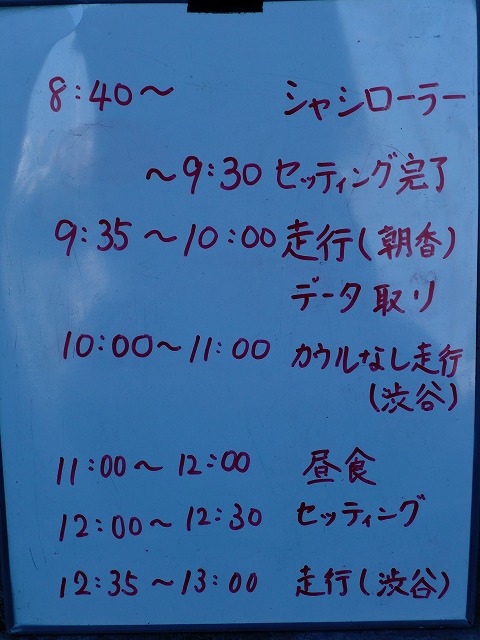 8:40～ シャシローラー
～9:30 セッティング完了
9:35～10:00 走行(朝香)
データ取り
10:00～11:00 カウルなし走行
(渋谷)
11:00～12:00 昼食
12:00～12:30 セッティング
12:35～13:00 走行(渋谷)